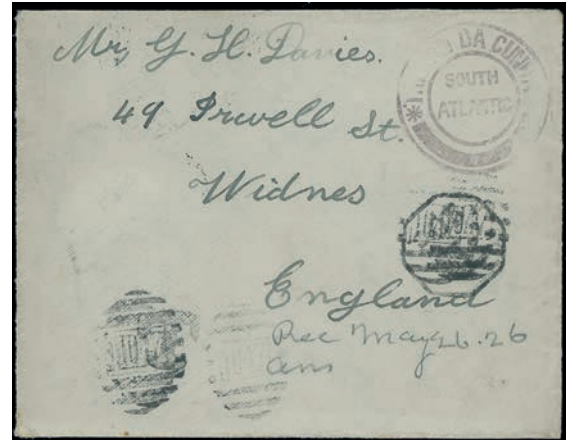 Mr, G. H. Davies.
49 Irwell St.
Widnes
England
Rec May 26.26
ans
DA CUNH
SOUTH
ATLANTIC